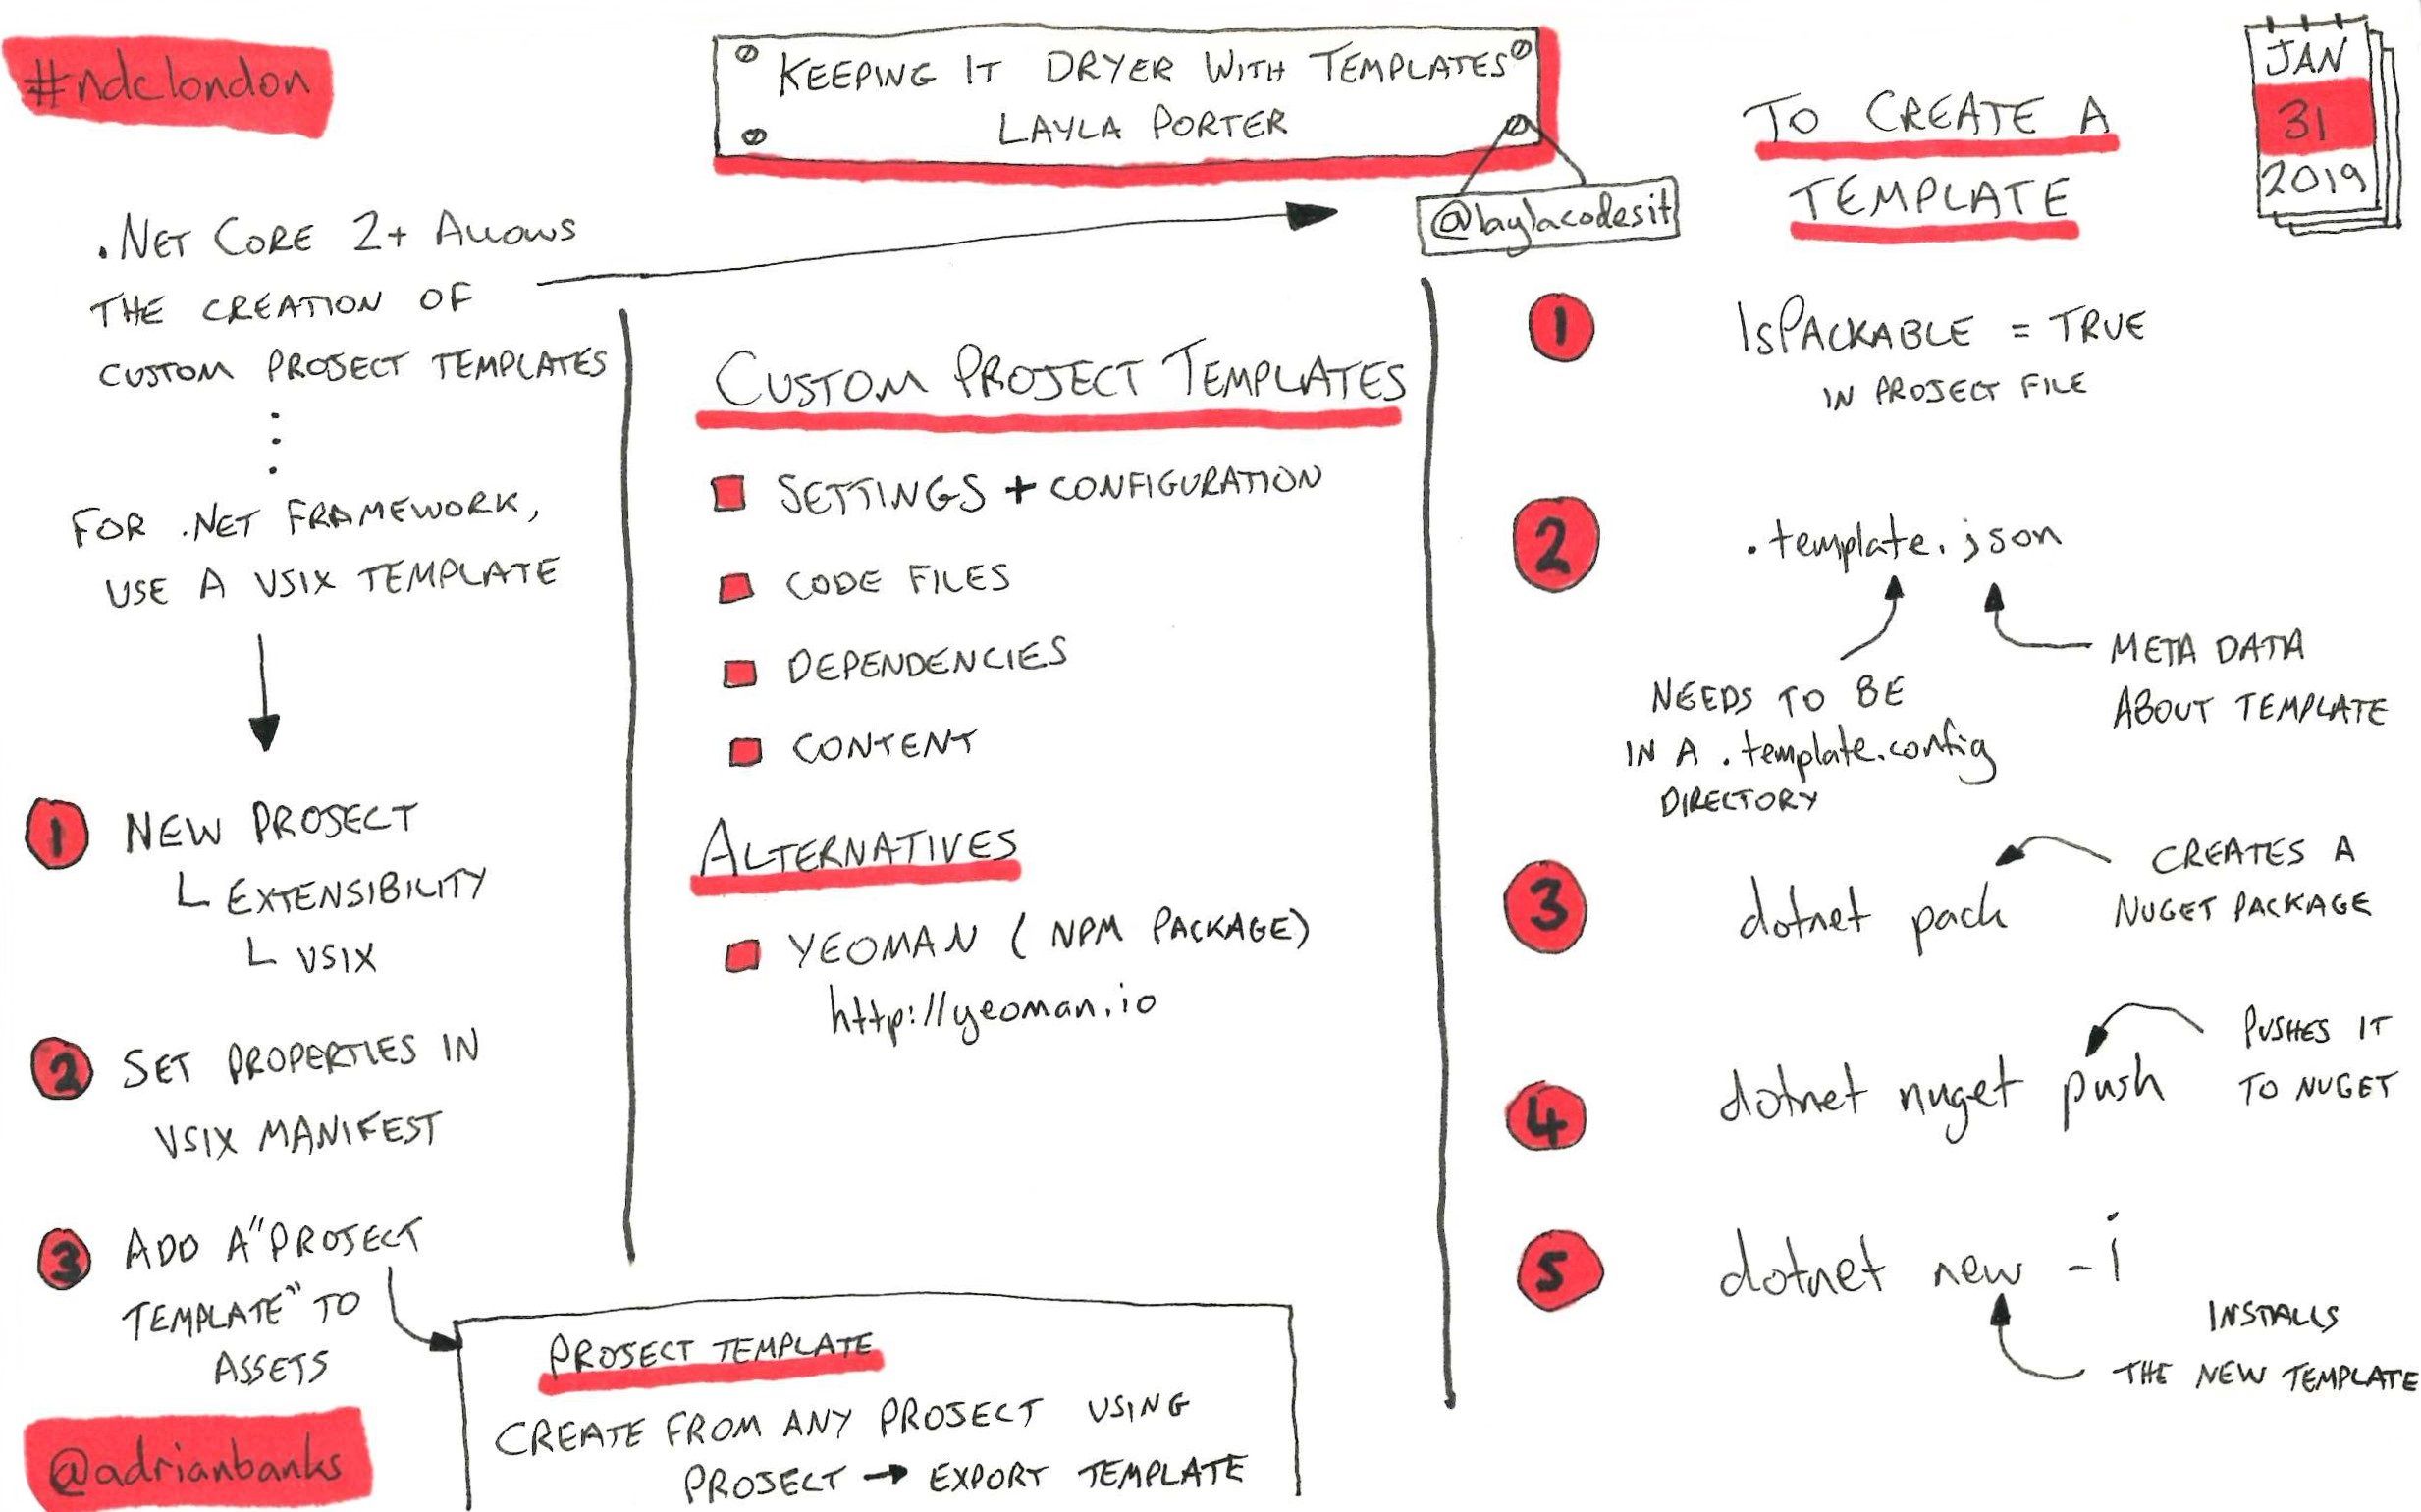 #ndclondon
KEEPING IT DRYER WITH TEMPLATES
LAYLA PORTER
@laylacodesit
JAN
31
2019
.NET CORE 2+ ALLOWS
THE CREATION OF
CUSTOM PROJECT TEMPLATES
FOR .NET FRAMEWORK,
USE A VSIX TEMPLATE
1 NEW PROJECT
EXTENSIBILITY
VSIX
2 SET PROPERTIES IN
VSIX MANIFEST
3 ADD A "PROJECT
TEMPLATE" TO
ASSETS
@adrianbanks
PROJECT TEMPLATE
CREATE FROM ANY PROJECT USING
PROJECT → EXPORT TEMPLATE
CUSTOM PROJECT TEMPLATES
SETTINGS + CONFIGURATION
CODE FILES
DEPENDENCIES
CONTENT
ALTERNATIVES
YEOMAN (NPM PACKAGE)
http://yeoman.io
TO CREATE A
TEMPLATE
1 ISPACKABLE = TRUE
IN PROJECT FILE
2 .template.json
NEEDS TO BE
IN A .template.config
DIRECTORY
META DATA
ABOUT TEMPLATE
3 dotnet pack
CREATES A
NUGET PACKAGE
4 dotnet nuget push
PUSHES IT
TO NUGET
5 dotnet new -i
INSTALLS
THE NEW TEMPLATE